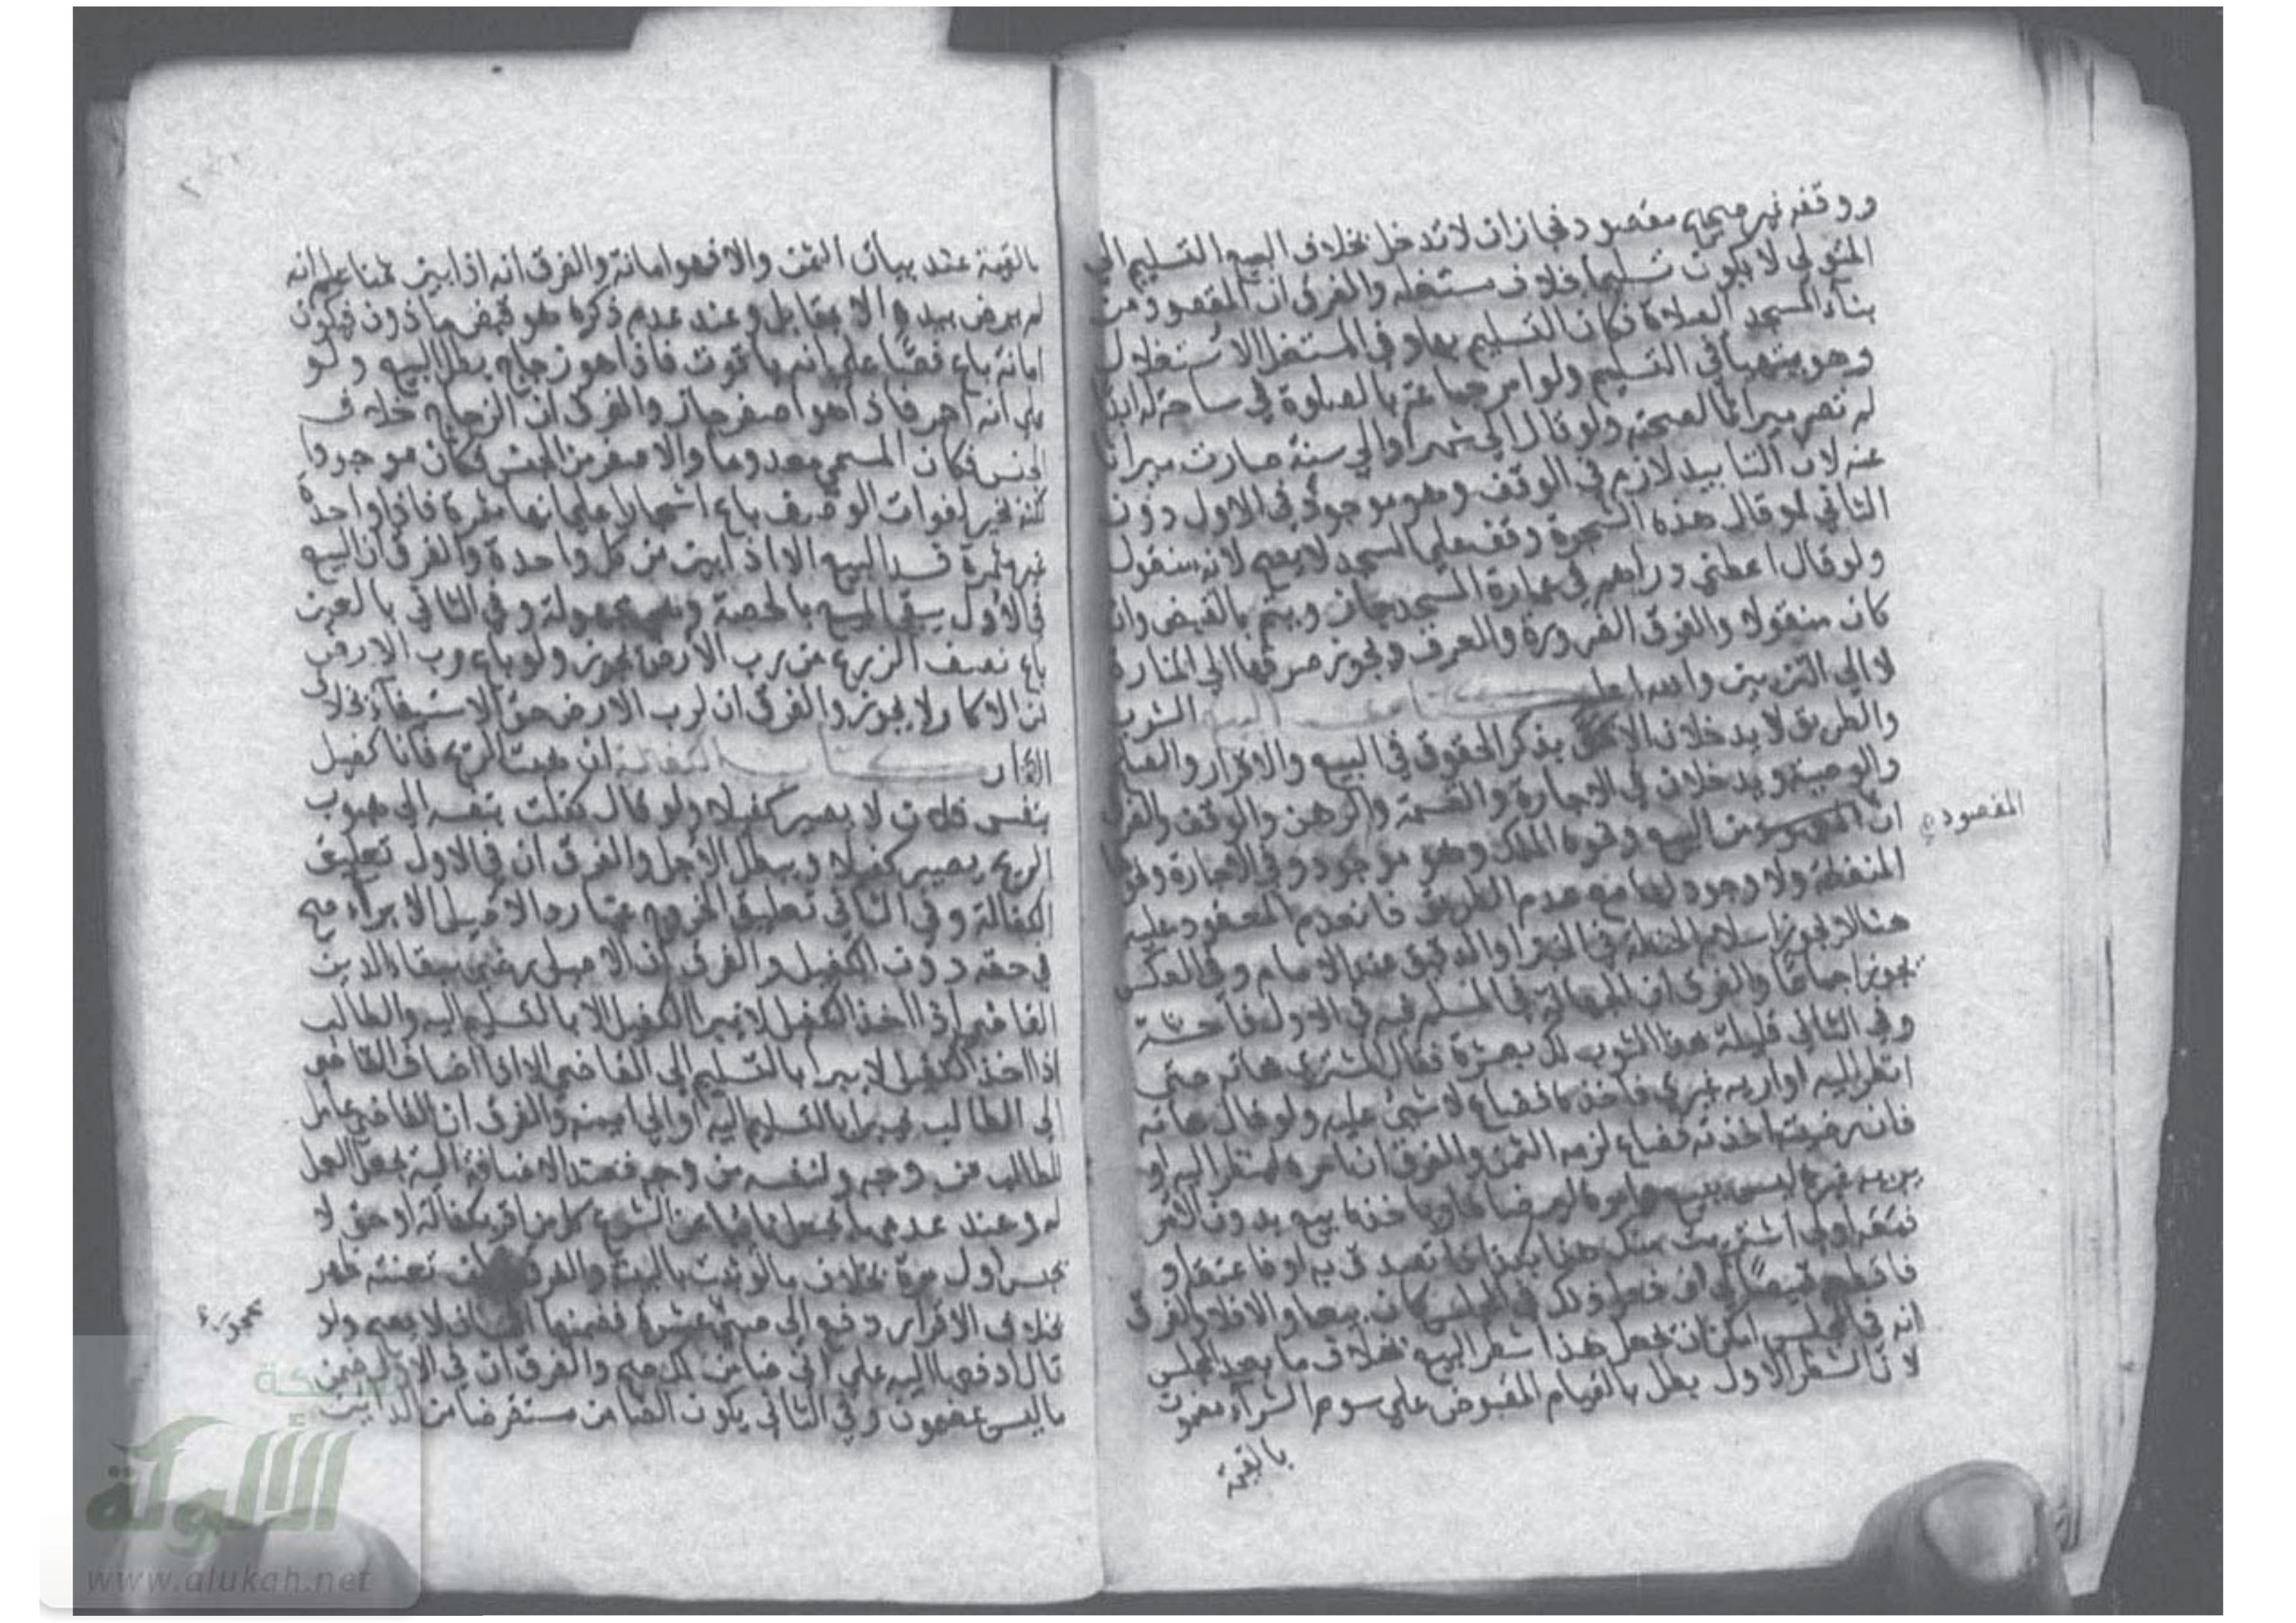 ووقفه غير صحيح مقصود فجاز ان لا تدخل بخلاف البيع التسليم الي
المتولي لا يكون تسليما بخلاف مستغله والفرق ان المقصود من
بناء المسجد الصلاة فكان التسليم بها وفي المستغل الاستغلال
وهو يتهيأ في التسليم ولو امر جماعة بالصلوة في ساحة له ابدا
لم تصر ميراثا لصحته ولو قال الي شهر او الي سنة صارت ميراثا
عنه لان التابيد لازم في الوقف وهو موجود في الاول دون
الثاني لو قال هذه الشجرة وقف علي المسجد لا يصح لانه منقول
ولو قال اعطني دراهم في عمارة المسجد جاز ويتم بالقبض وان
كان منقولا والفرق الضرورة والعرف ويجوز صرفها الي المنارة
لا الي التزيين والله اعلم كتاب البيع الشرب
والطريق لا يدخلان الا بذكر الحقوق في البيع والاقرار
والوصية ويدخلان في الاجارة والقسمة والرهن والوقف والفرق
ان من البيع ونحوه الملك وهو موجود وفي الاجارة ونحوها
المقصود
المنفعة ولا وجود لها مع عدم الطريق فانعدم المعقود عليه
هنا لا يجوز اسلام الحنطة في الخبز او الدقيق عند الامام وفي العكس
يجوز اجماعا والفرق ان الجهالة في المسلم فيه في الاول فاحشة
وفي الثاني قليلة هذا الثوب لك بعشرة فقال المشتري هاته حتي
انظر اليه او اريه غيري فاخذه فضاع لا شيئ عليه ولو قال هاته
فان رضيته اخذته فضاع لزمه الثمن والفرق ان امره لينظر اليه او
يريه غيره ليس ببيع
فاقطعه قميصا لي ان فعل ذلك في المجلس كان بيعا والا فلا والفرق
انه في المجلس امكن ان يجعل هذا شطر البيع بخلاف ما بعد المجلس
لان الشطر الاول بطل بالقيام المقبوض علي سوم الشراء مضمون
بالقيمة
بالقيمة عند بيان الثمن والا فهو امانة والفرق انه اذا بين ثمنا علم انه
لم يرض بيده الا بمقابل وعند عدم ذكره هو قبض ماذون فيكون
امانة باع فصا علي انه ياقوت فاذا هو زجاج بطل البيع ولو
علي انه احمر فاذا هو اصفر جاز والفرق ان الزجاج خلاف
الجنس فكان المسمي معدوما والاصفر من الجنس فكان موجودا
لكنه يخير لفوات الوصف باع اشجارا علي انها مثمرة فاذا واحدة
غير مثمرة فسد البيع الا اذا بين ثمن كل واحدة والفرق ان البيع
في الاول يبقي البيع بالحصة وهي مجهولة وفي الثاني بالعين
باع نصف الزرع من رب الارض يجوز ولو باع رب الارض
من الاكار لا يجوز والفرق ان لرب الارض حق الاستيفاء بخلاف
الاكار كتاب الكفالة ان هبت الريح فانا كفيل
بنفس فلان لا يصير كفيلا ولو قال كفلت بنفسه الي هبوب
الريح يصير كفيلا ويبطل الاجل والفرق ان في الاول تعليق
الكفالة وفي الثاني تعليق الخروج عنها رد الاصيل الابراء صح
في حقه دون الكفيل والفرق ان الاصيل رضي ببقاء الدين
القاضي اذا اخذ الكفيل لا يبرأ الكفيل الا بالتسليم اليه والطالب
اذا اخذ الكفيل لا يبرأ بالتسليم الي القاضي الا اذا اضاف القاضي
الي الطالب فيبرأ بالتسليم اليه او الي امينه والفرق ان القاضي عامل
للطالب من وجه ولنفسه من وجه فعند الاضافة اليه يجعل العمل
له وعند عدمها يجعل نائبا عن الشرع كل من اقر بكفالة او حق لا
يحبس اول مرة بخلاف ما لو ثبت بالبينة والفرق ان تعنته ظهر
بخلاف الاقرار دفع الي صبي عشرة فضمنها انسان لا يصح ولو
محجور
قال ادفعها اليه علي اني ضامن لك صح والفرق ان في الاول ضمن
ما ليس بمضمون وفي الثاني يكون الضامن مستقرضا من الدافع
شبكة
الألوكة
www.alukah.net